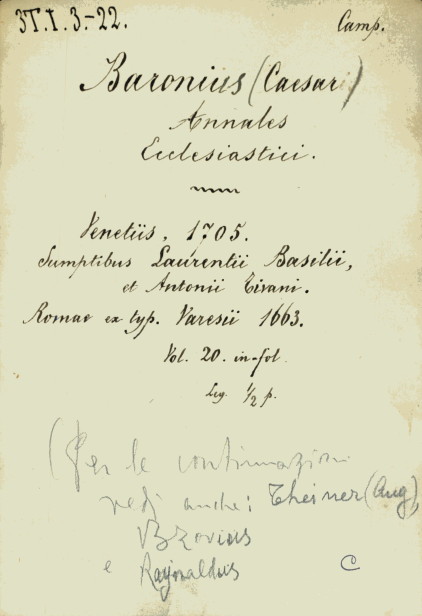 37.I.3.-22.
Camp.
Baronius (Caesar)
Annales
Ecclesiastici.
Venetiis, 1705.
Sumptibus Laurentii Basilii,
et Antonii Tivani.
Romae ex typ. Varesii 1663.
Vol. 20. in-fol
Leg. 1/2 p.
(Per le continuazioni
vedi anche: Theiner (Aug),
Bzovius
e Raynaldus
C